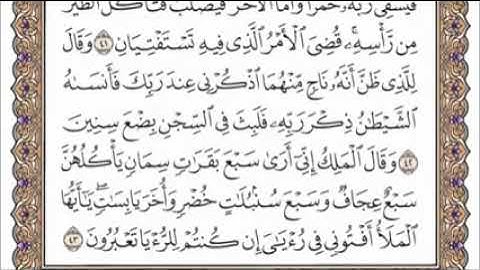 فَيَسْقِى رَبَّهُۥ خَمْرًا وَأَمَّا ٱلْءَاخَرُ فَيُصْلَبُ فَتَأْكُلُ ٱلطَّيْرُ
مِن رَّأْسِهِۦ قُضِىَ ٱلْأَمْرُ ٱلَّذِى فِيهِ تَسْتَفْتِيَانِ ٤١ وَقَالَ
لِلَّذِى ظَنَّ أَنَّهُۥ نَاجٍ مِّنْهُمَا ٱذْكُرْنِى عِندَ رَبِّكَ فَأَنسَىٰهُ
ٱلشَّيْطَٰنُ ذِكْرَ رَبِّهِۦ فَلَبِثَ فِى ٱلسِّجْنِ بِضْعَ سِنِينَ
٤٢ وَقَالَ ٱلْمَلِكُ إِنِّىٓ أَرَىٰ سَبْعَ بَقَرَٰتٍ سِمَانٍ يَأْكُلُهُنَّ
سَبْعٌ عِجَافٌ وَسَبْعَ سُنۢبُلَٰتٍ خُضْرٍ وَأُخَرَ يَابِسَٰتٍ يَٰٓأَيُّهَا
ٱلْمَلَأُ أَفْتُونِى فِى رُءْيَٰىَ إِن كُنتُمْ لِلرُّءْيَا تَعْبُرُونَ ٤٣